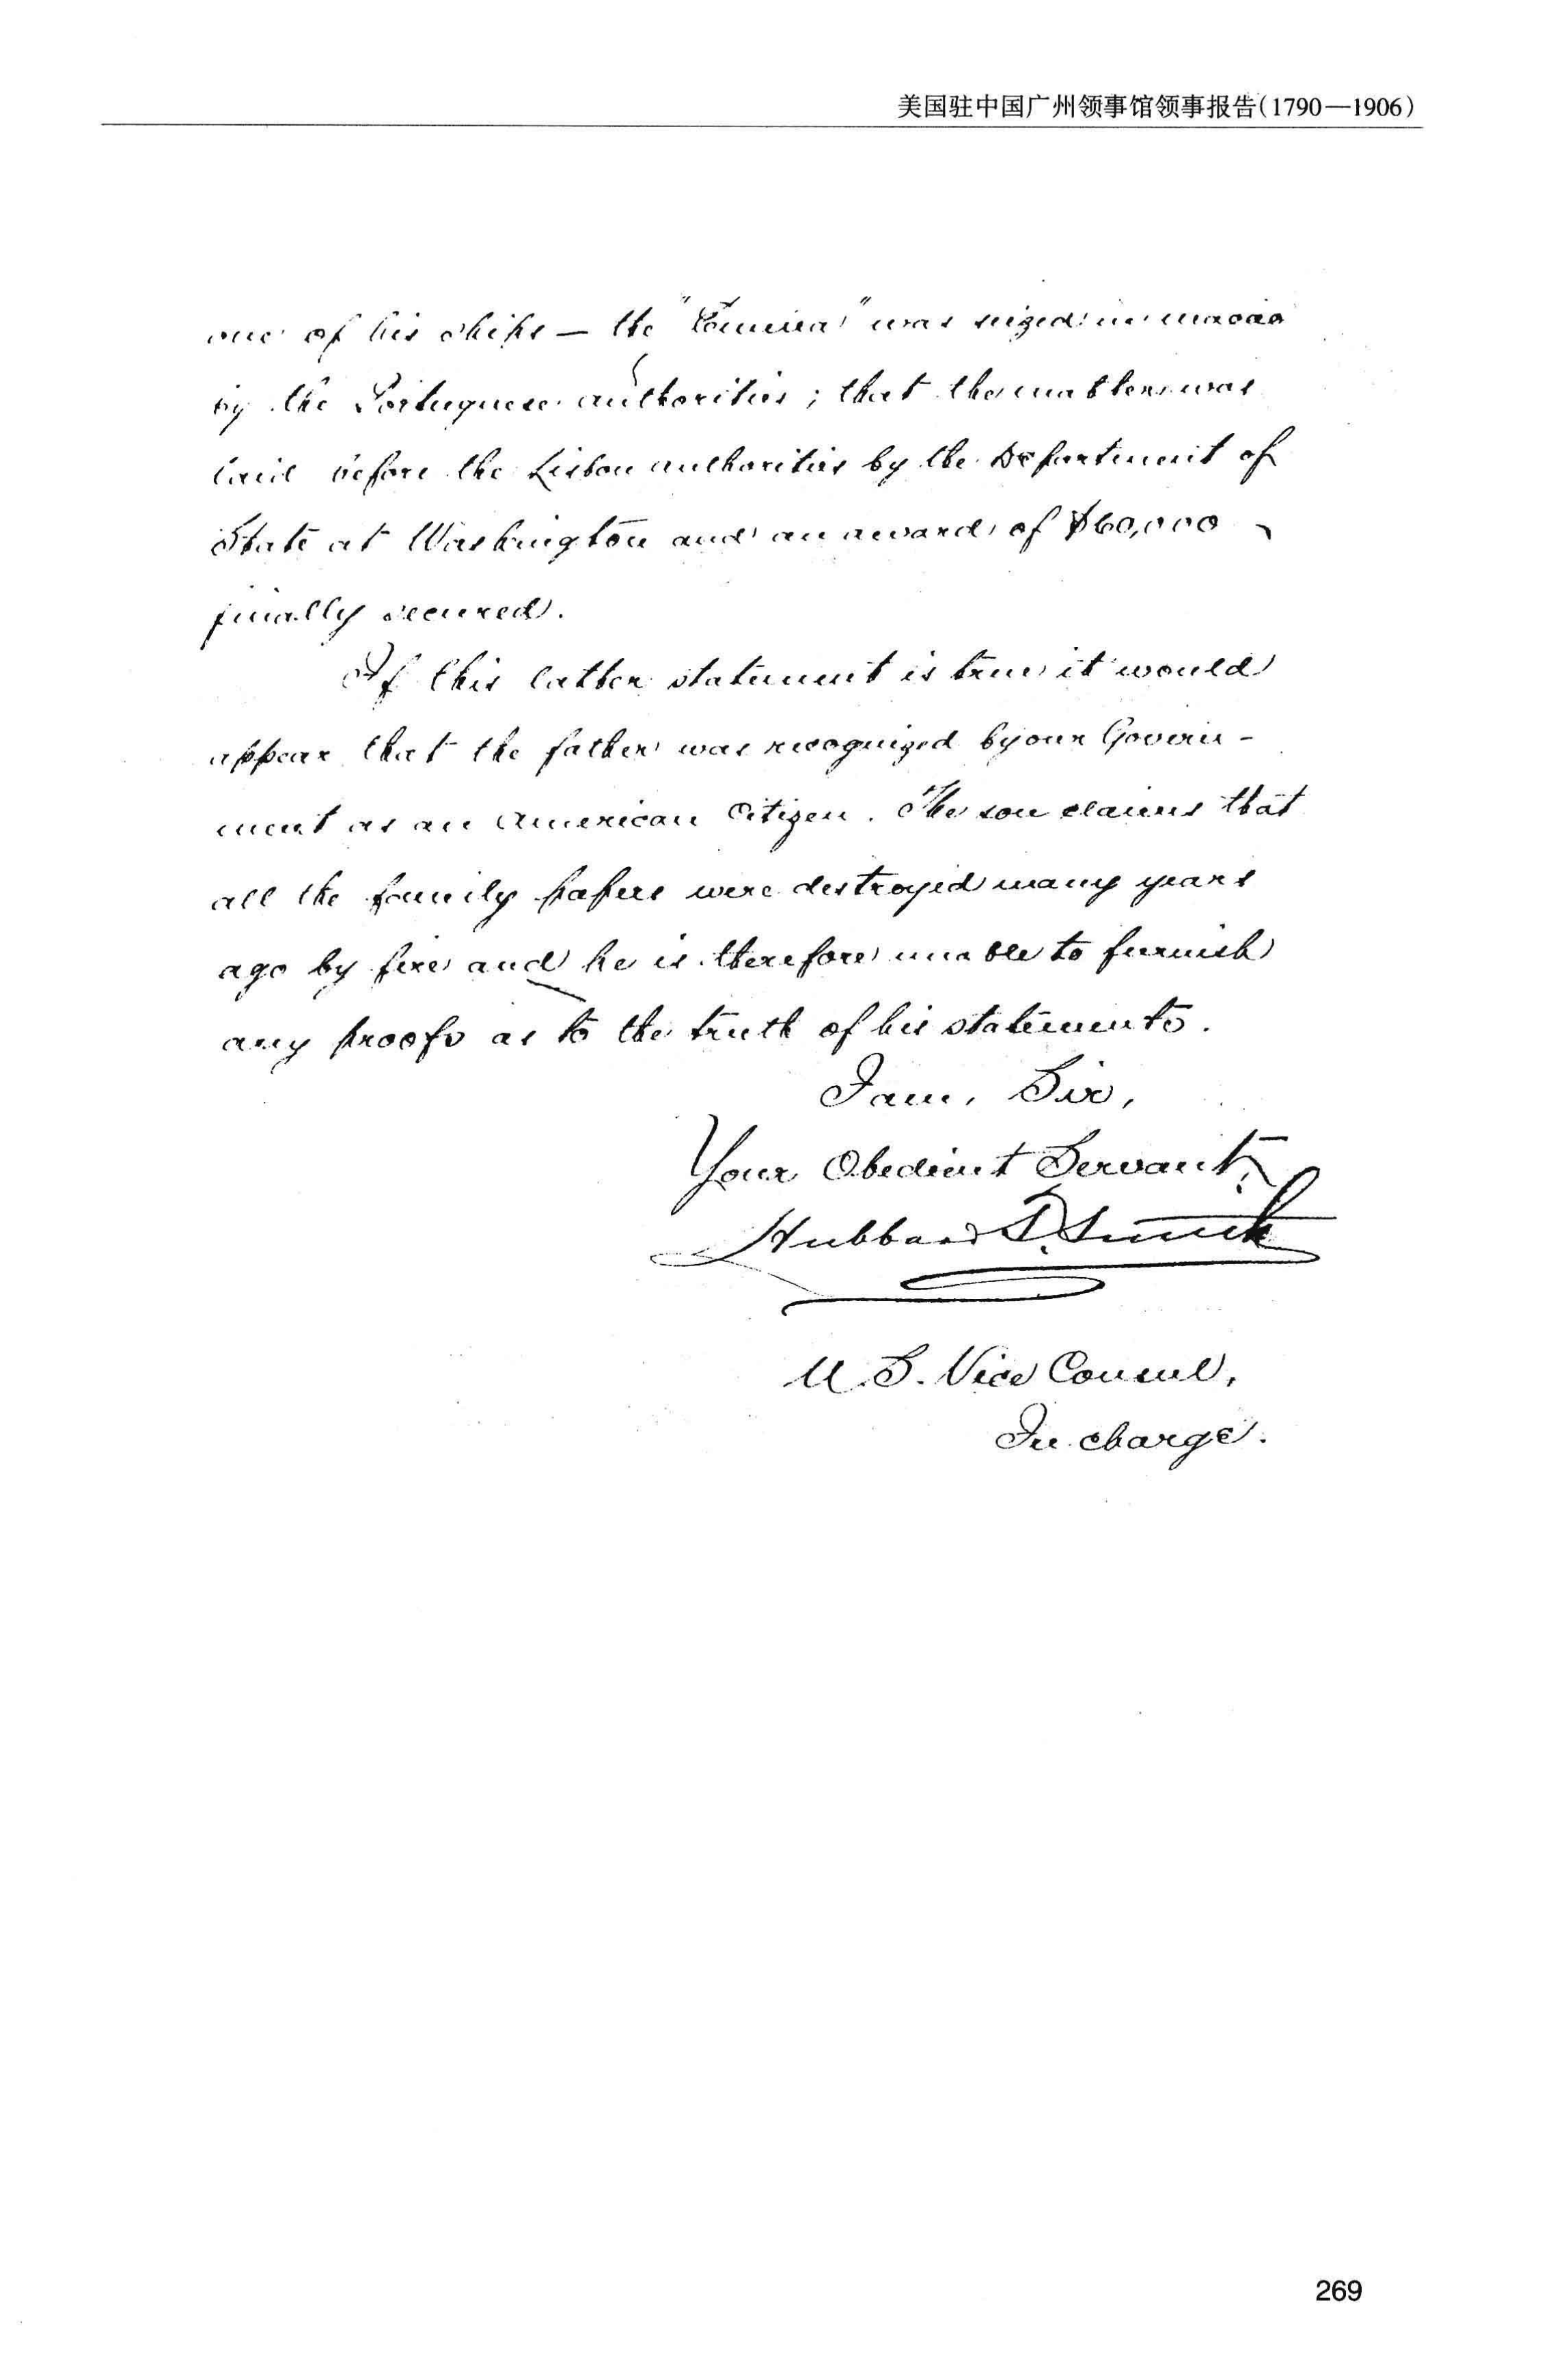 美国驻中国广州领事馆领事报告(1790—1906)
one of his ships — the " " was seized in Macao
by the Portuguese authorities; that the matter was
laid before the Lisbon authorities by the Department of
State at Washington and an award of $60,000
finally secured.
If this latter statement is true it would
appear that the father was recognized by our Govern-
ment as an American Citizen. The son claims that
all the family papers were destroyed many years
ago by fire and he is therefore unable to furnish
any proofs as to the truth of his statements.
I am, Sir,
Your Obedient Servant,
Hubbard T. Smith
U.S. Vice Consul,
In charge.
269